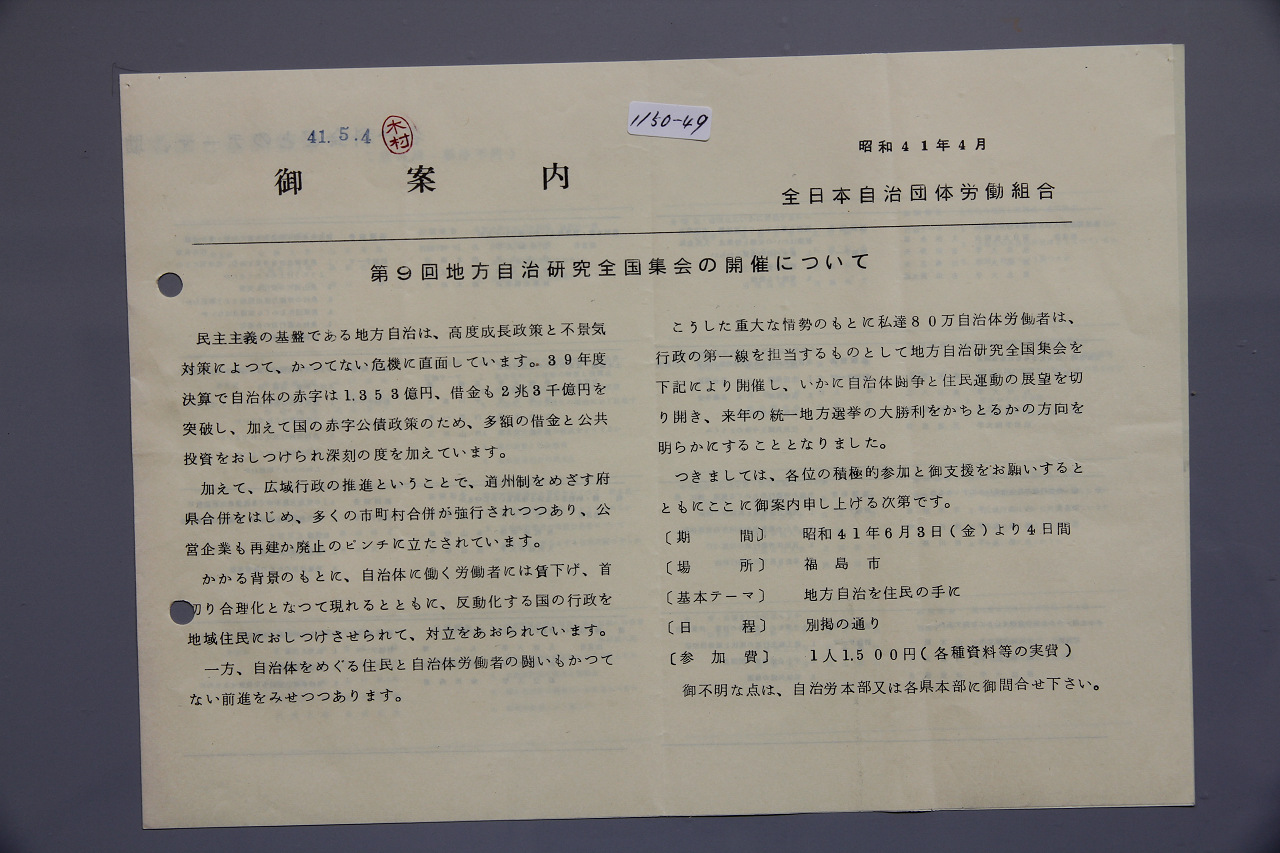 41.5.4
木村
1150-49
昭和41年4月
御案内
全日本自治団体労働組合
第9回地方自治研究全国集会の開催について
民主主義の基盤である地方自治は、高度成長政策と不景気
対策によつて、かつてない危機に直面しています。39年度
決算で自治体の赤字は1.353億円、借金も2兆3千億円を
突破し、加えて国の赤字公債政策のため、多額の借金と公共
投資をおしつけられ深刻の度を加えています。
加えて、広域行政の推進ということで、道州制をめざす府
県合併をはじめ、多くの市町村合併が強行されつつあり、公
営企業も再建か廃止のピンチに立たされています。
かかる背景のもとに、自治体に働く労働者には賃下げ、首
切り合理化となつて現れるとともに、反動化する国の行政を
地域住民におしつけさせられて、対立をあおられています。
一方、自治体をめぐる住民と自治体労働者の闘いもかつて
ない前進をみせつつあります。
こうした重大な情勢のもとに私達80万自治体労働者は、
行政の第一線を担当するものとして地方自治研究全国集会を
下記により開催し、いかに自治体闘争と住民運動の展望を切
り開き、来年の統一地方選挙の大勝利をかちとるかの方向を
明らかにすることとなりました。
つきましては、各位の積極的参加と御支援をお願いすると
ともにここに御案内申し上げる次第です。
〔期間〕 昭和41年6月3日(金)より4日間
〔場所〕 福島市
〔基本テーマ〕 地方自治を住民の手に
〔日程〕 別掲の通り
〔参加費〕 1人1.500円(各種資料等の実費)
御不明な点は、自治労本部又は各県本部に御問合せ下さい。